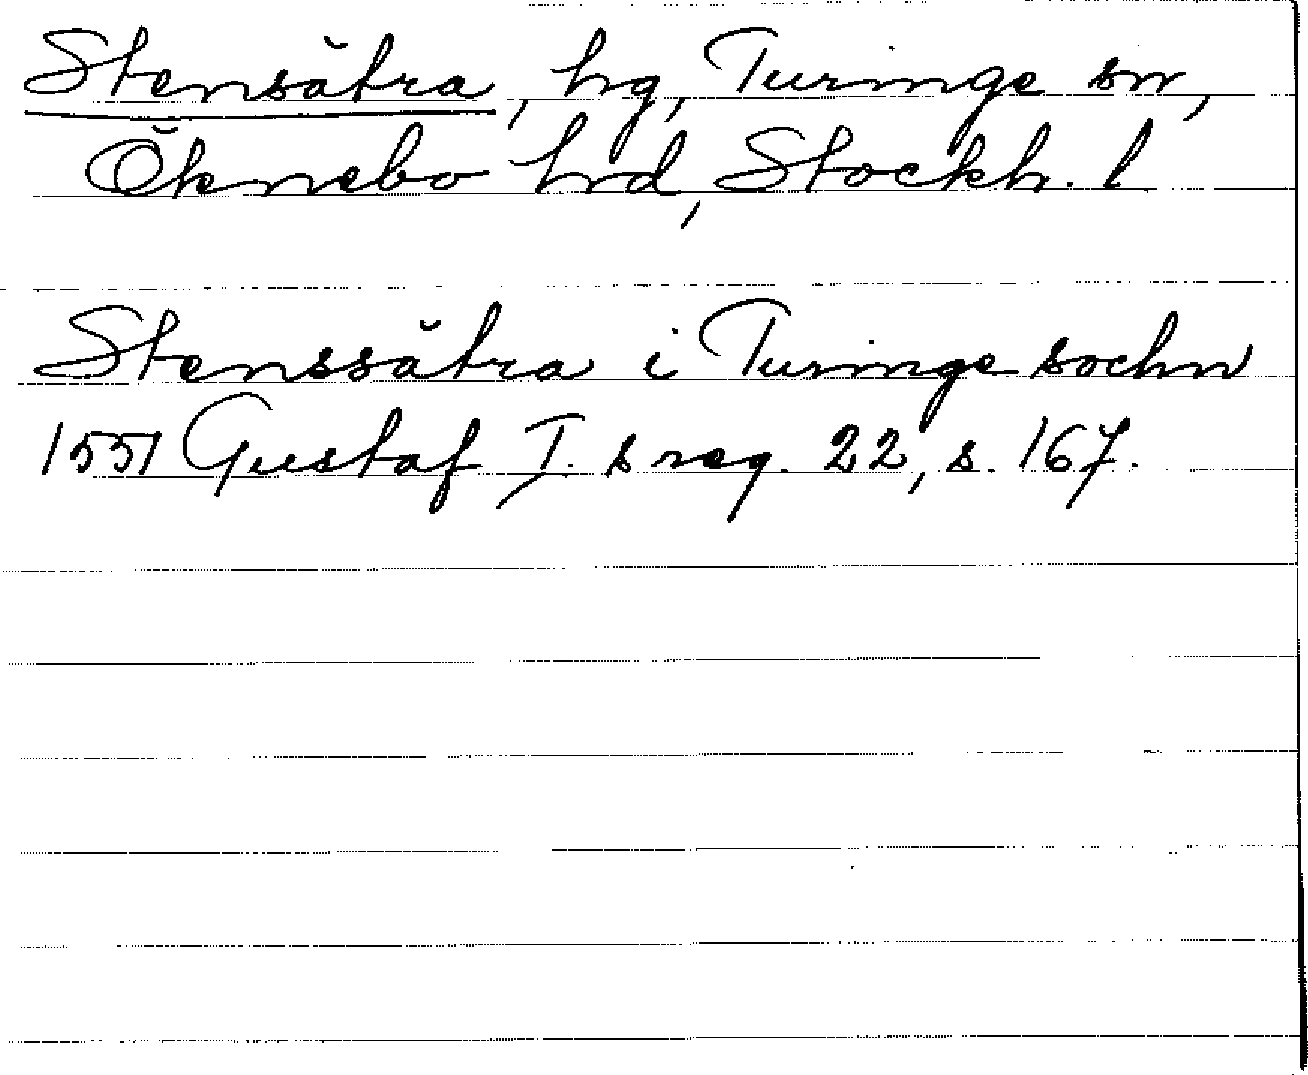 Stensätra, hg, Turinge sn,
Öknebo hrd, Stockh. l
Stenssätra i Turinge sochn
1551 Gustaf I. s reg. 22, s. 167.